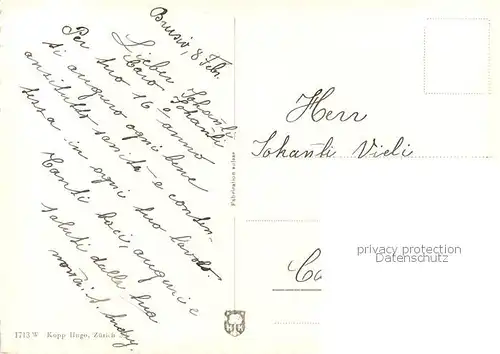 Brusio, 8 Febr.
Lieber Johanti
Caro Johanti
Per tuo 16 anno
ti auguro ogni bene
anzitutto sanità e contin-
tezza in ogni tuo lavoro
Tanti baci, auguri e
saluti dalla tua
Herr
Johanti Vieli
Ca
privacy protection
Datenschutz
Fabrication suisse
1713 W Kopp Hugo, Zürich